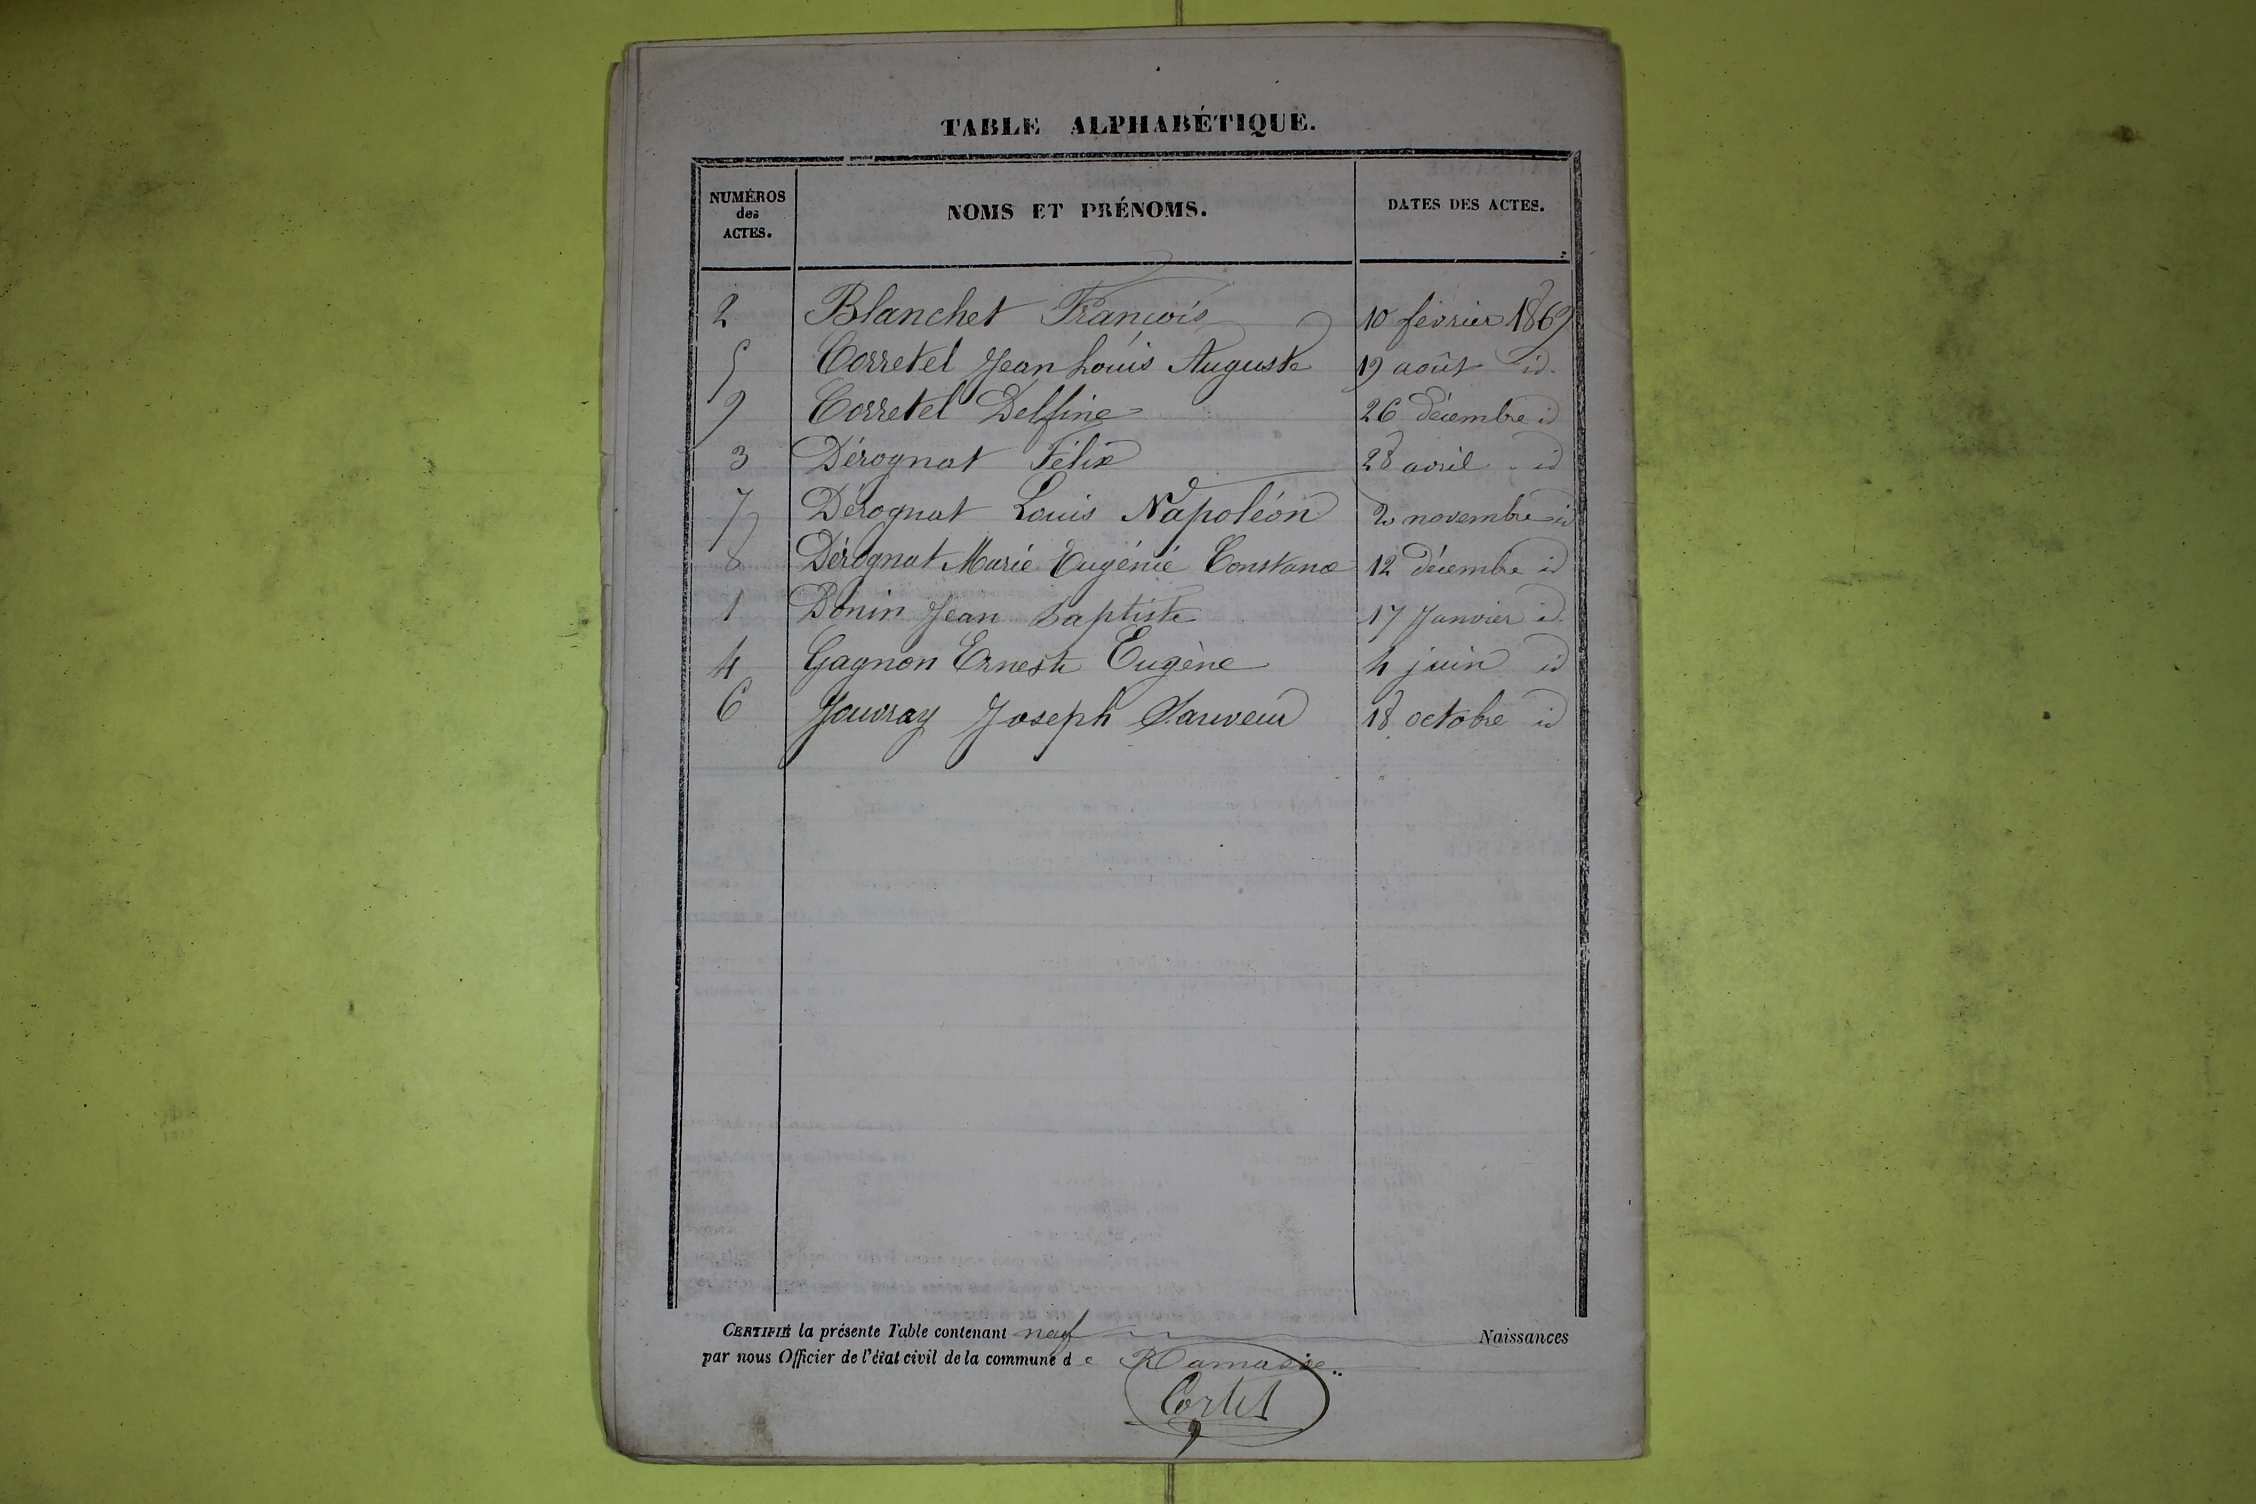 TABLE ALPHABÉTIQUE.
NUMÉROS des ACTES. NOMS ET PRÉNOMS. DATES DES ACTES.
2 Blanchet François 10 février 1869
5 Corretel Jean Louis Auguste 19 août id.
9 Corretel Delfine 26 décembre id
3 Dérognat Félix 28 avril id
7 Dérognat Louis Napoléon 2 novembre id
8 Dérognat Marie Eugénie Constance 12 décembre id
1 Donin Jean Baptiste 17 Janvier id
4 Gagnon Ernest Eugène 4 juin id
6 Jouvray Joseph Sauveur 18 octobre id
CERTIFIÉ la présente Table contenant neuf Naissances
par nous Officier de l'état civil de la commune de Ramasse
Cortet